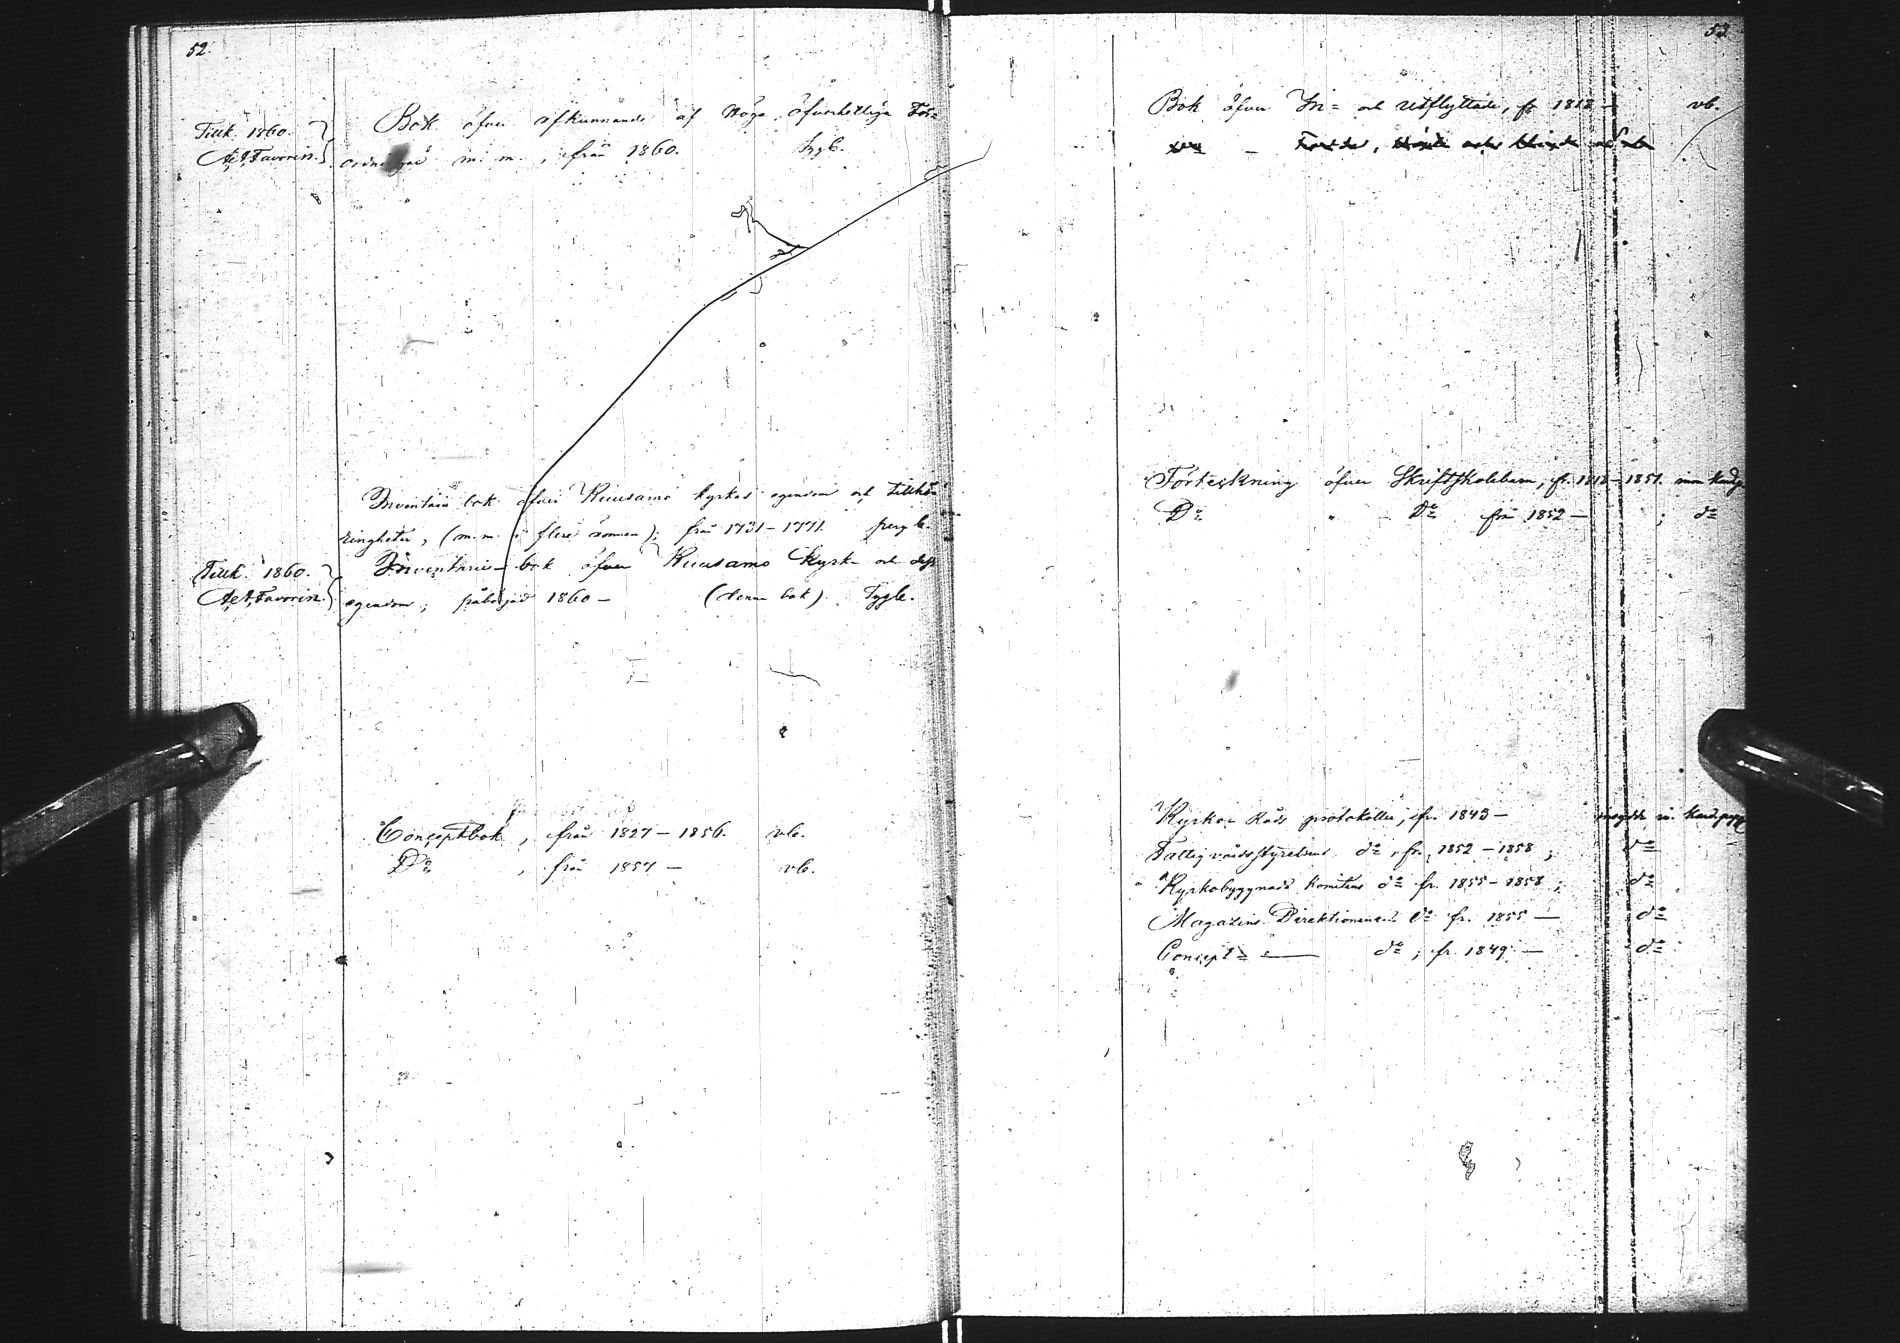 52.
Tillk. 1860.
A. A. Favorin.
Bok öfver afkunnande af Höga öfverhetliga För-
ordningar m. m., ifrån 1860. Tygb.
Inventarii bok öfver Kuusamo kyrkas egendom och tillhö-
righeter, (m. m. i flere ämnen); från 1731-1771. pergb.
Tillk. 1860.
A. A. Favorin.
Inventarie-bok öfver Kuusamo Kyrk- och dess
egendom; påbörjad 1860 - (denna bok). Tygb.
Conceptbok, ifrån 1827-1856. vb.
Do, från 1857 - vb.
53
Bok öfver In- och Utflyttade, fr. 1818 - vb.
Förteckning öfver Skriftskolebarn, fr. 1818-1851. inom
Do " Do från 1852 - ; do
Kyrko-Råds protokoller, ifr. 1843 -
Fattigvårdsstyrelsens do, fr. 1852-1858; do
Kyrkobyggnads Komitens do fr. 1855-1858; do
Magazins Direktionens do fr. 1855 - do
Concept - do, fr. 1849 - do